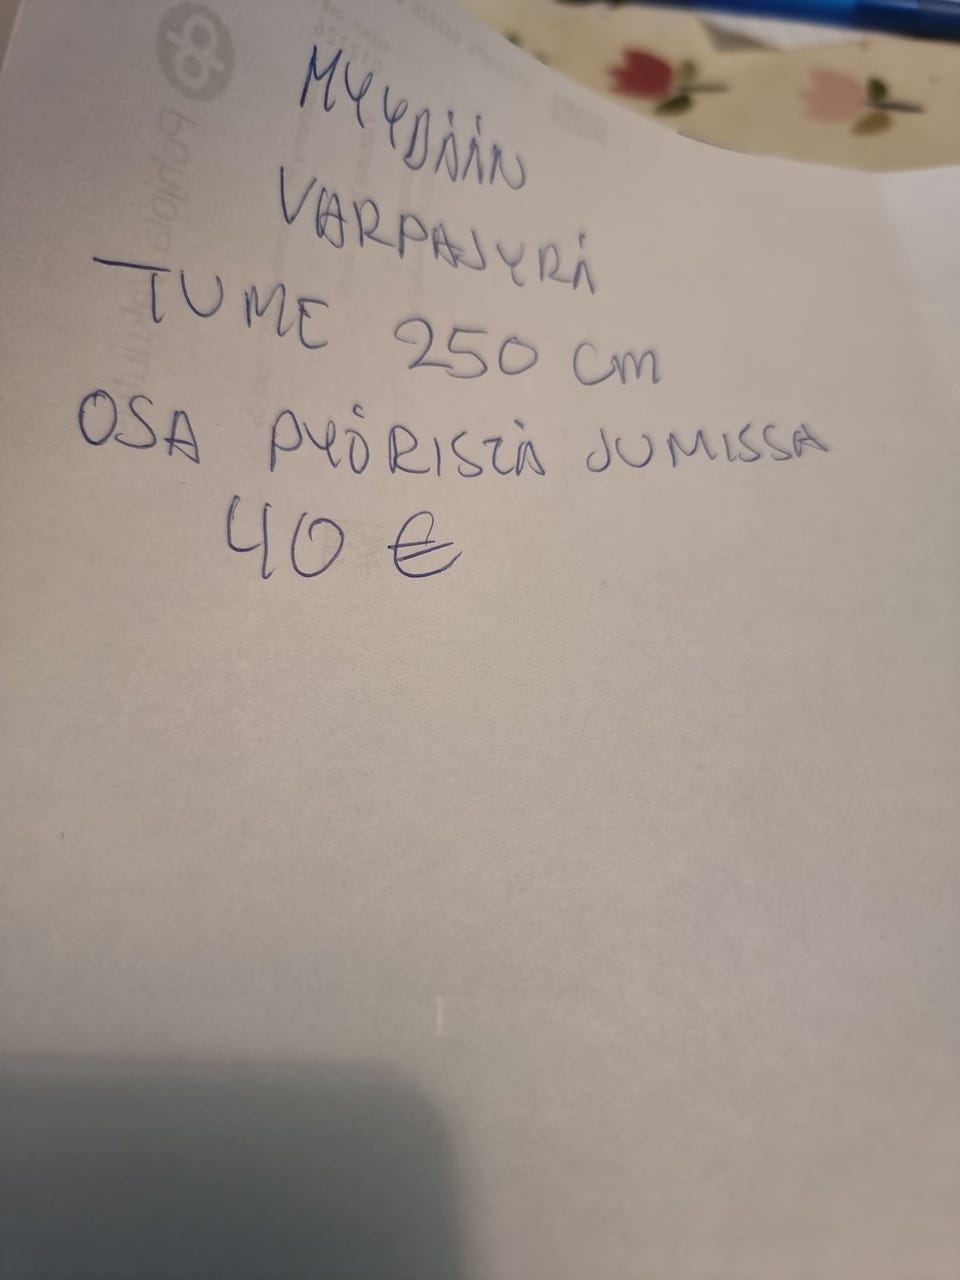 MYYDÄÄN
VARPAJYRÄ
TUME 250 cm
OSA PYÖRISTÄ JUMISSA
40 €